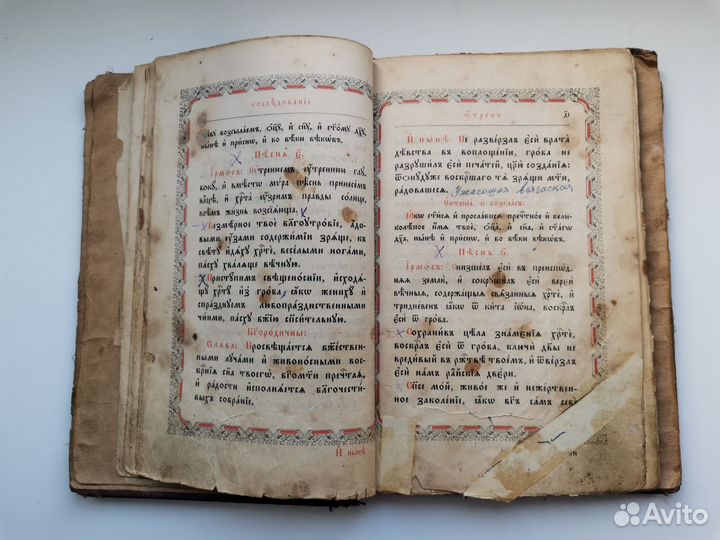 послѣдованіе
ꙋву возсылаемъ, ѻ҆ц҃ꙋ̀, и҆ сн҃ꙋ, и҆ ст҃о́мꙋ дх҃ꙋ,
ны́нѣ и҆ при́снѡ, и҆ во вѣ́ки вѣкѡ́въ.
Пѣ́снь є҃.
І҆рмо́съ: Оу҆́тренюемъ оу҆́треннюю глꙋ-
бокꙋ̀, и҆ вмѣ́стѡ мѵ́ра пѣ́снь принесе́мъ
влⷣцѣ, и҆ хрⷭ҇та̀ оу҆́зримъ пра́вды со́лнце,
всѣ́мъ жи́знь возсїѧ́юща.
Безмѣ́рное твоѐ благоꙋтро́бїе, а҆́до-
выми оу҆́зами содержи́мїи зрѧ́ще, къ
свѣ́тꙋ и҆дѧ́хꙋ хрⷭ҇тѐ, весе́лыми нога́ми,
па́схꙋ хва́лѧще вѣ́чнꙋю.
Пристꙋ́пимъ свѣщено́снїи, и҆сходѧ́-
щꙋ хрⷭ҇тꙋ̀ и҆з̾ гро́ба, ꙗ҆́кѡ женихꙋ̀ и҆
спра́зднꙋемъ любопра́здственными
чи́нми, па́схꙋ бж҃їю спаси́тельнꙋю.
Бг҃оро́дичны:
Сла́ва: Просвѣща́етсѧ бж҃е́ствен-
ными лꙋча́ми и҆ живоно́сными вос-
крⷭ҇нїѧ сн҃а твоегѡ̀, бг҃ома́ти пречⷭ҇таѧ,
и҆ ра́дости и҆сполнѧ́етсѧ благочести́-
выхъ собра́нїе.
И҆ ны́нѣ
оу҆́трени
И҆ ны́нѣ: Не разве́рзлъ є҆сѝ врата̀
дѣ́вства въ воплоще́нїи, гро́ба не
разрꙋши́лъ є҆сѝ печа́тей, цр҃ю̀ созда́нїѧ:
ѿнꙋ́дꙋже воскрⷭ҇шаго тѧ̀ зрѧ́щи мт҃и,
ра́довашесѧ.
Є҆ктенїа̀ и҆ во́згласъ:
Ꙗ҆́кѡ ст҃и́сѧ и҆ просла́висѧ пречⷭ҇тно́е и҆ вели-
колѣ́пое и҆́мѧ твоѐ, ѻ҆ц҃а̀, и҆ сн҃а, и҆ ст҃а́гѡ
дх҃а, ны́нѣ и҆ при́снѡ, и҆ во вѣ́ки вѣкѡ́въ.
Пѣ́снь ѕ҃.
І҆рмо́съ: Снизше́лъ є҆сѝ въ преиспѡ́д-
нѧѧ землѝ, и҆ сокрꙋши́лъ є҆сѝ верєѝ
вѣ̑чныѧ, содержа́щыѧ свѧ̑занныѧ хрⷭ҇тѐ, и҆
тридне́венъ ꙗ҆́кѡ ѿ ки́та і҆ѡ́на, воскре́съ
є҆сѝ ѿ гро́ба.
Сохрани́въ цѣ̑ла зна́мєнїѧ хрⷭ҇тѐ,
воскре́слъ є҆сѝ ѿ гро́ба, ключи̑ дв҃ы не
вреди́вый въ ржⷭ҇твѣ̀ твое́мъ, и҆ ѿве́рзлъ
є҆сѝ на́мъ ра̑йскїѧ двє́ри.
Сп҃се мо́й, живо́е же и҆ неже́ртвен-
ное заколе́нїе, ꙗ҆́кѡ бг҃ъ са́мъ себѐ
Avito